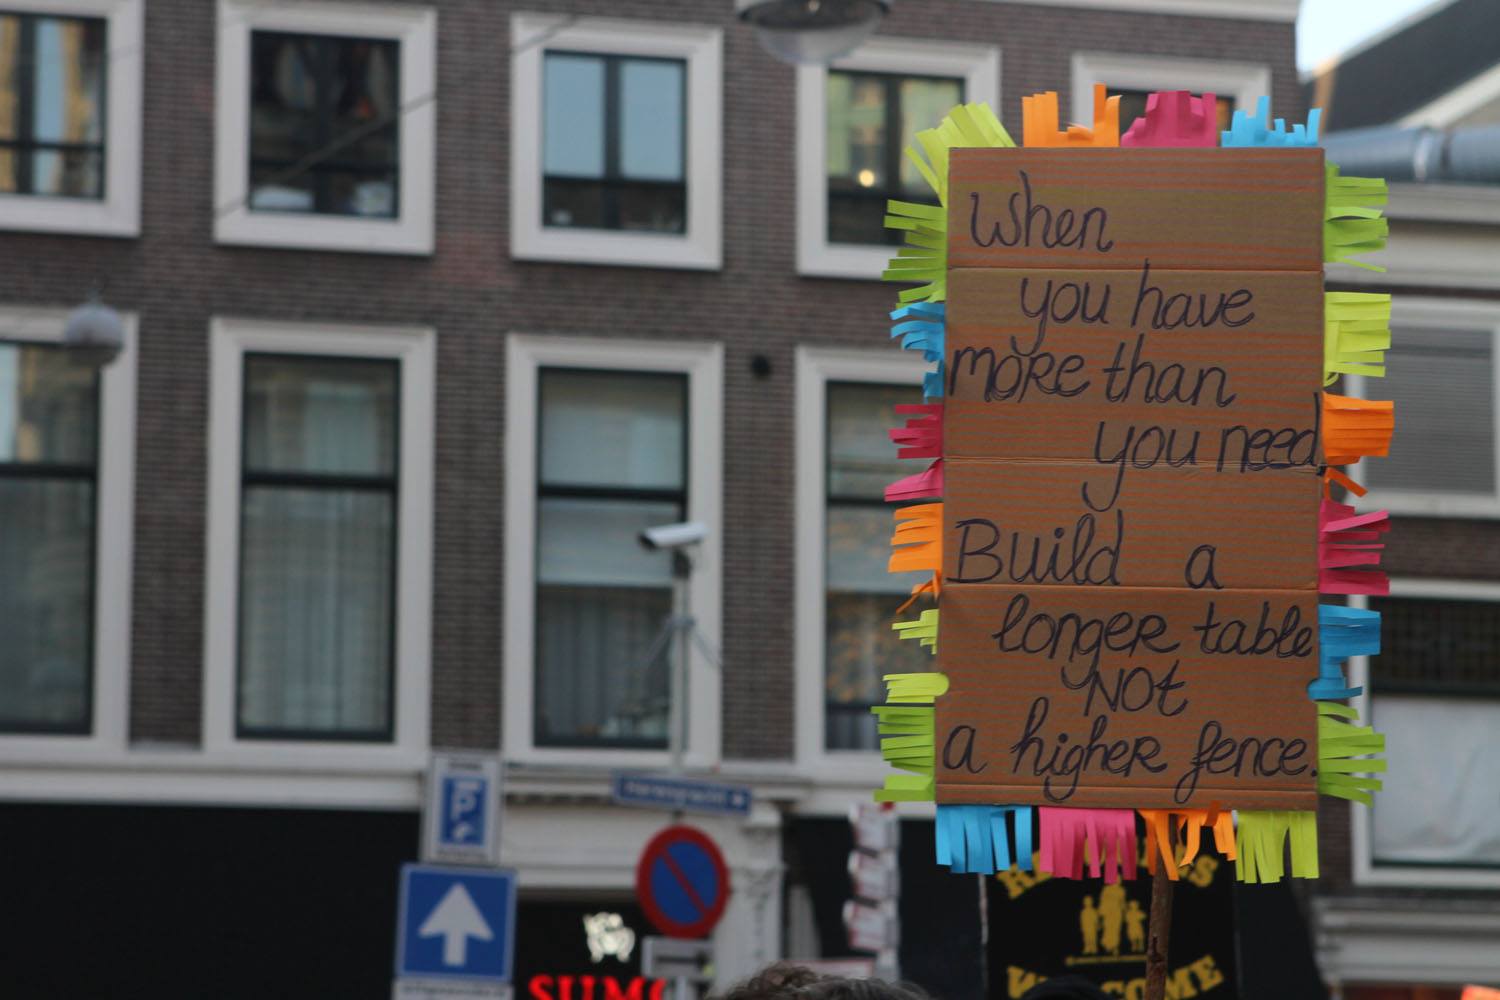 When
you have
more than
you need,
Build a
longer table
NOT
a higher fence.
P
SUMO
WELCOME